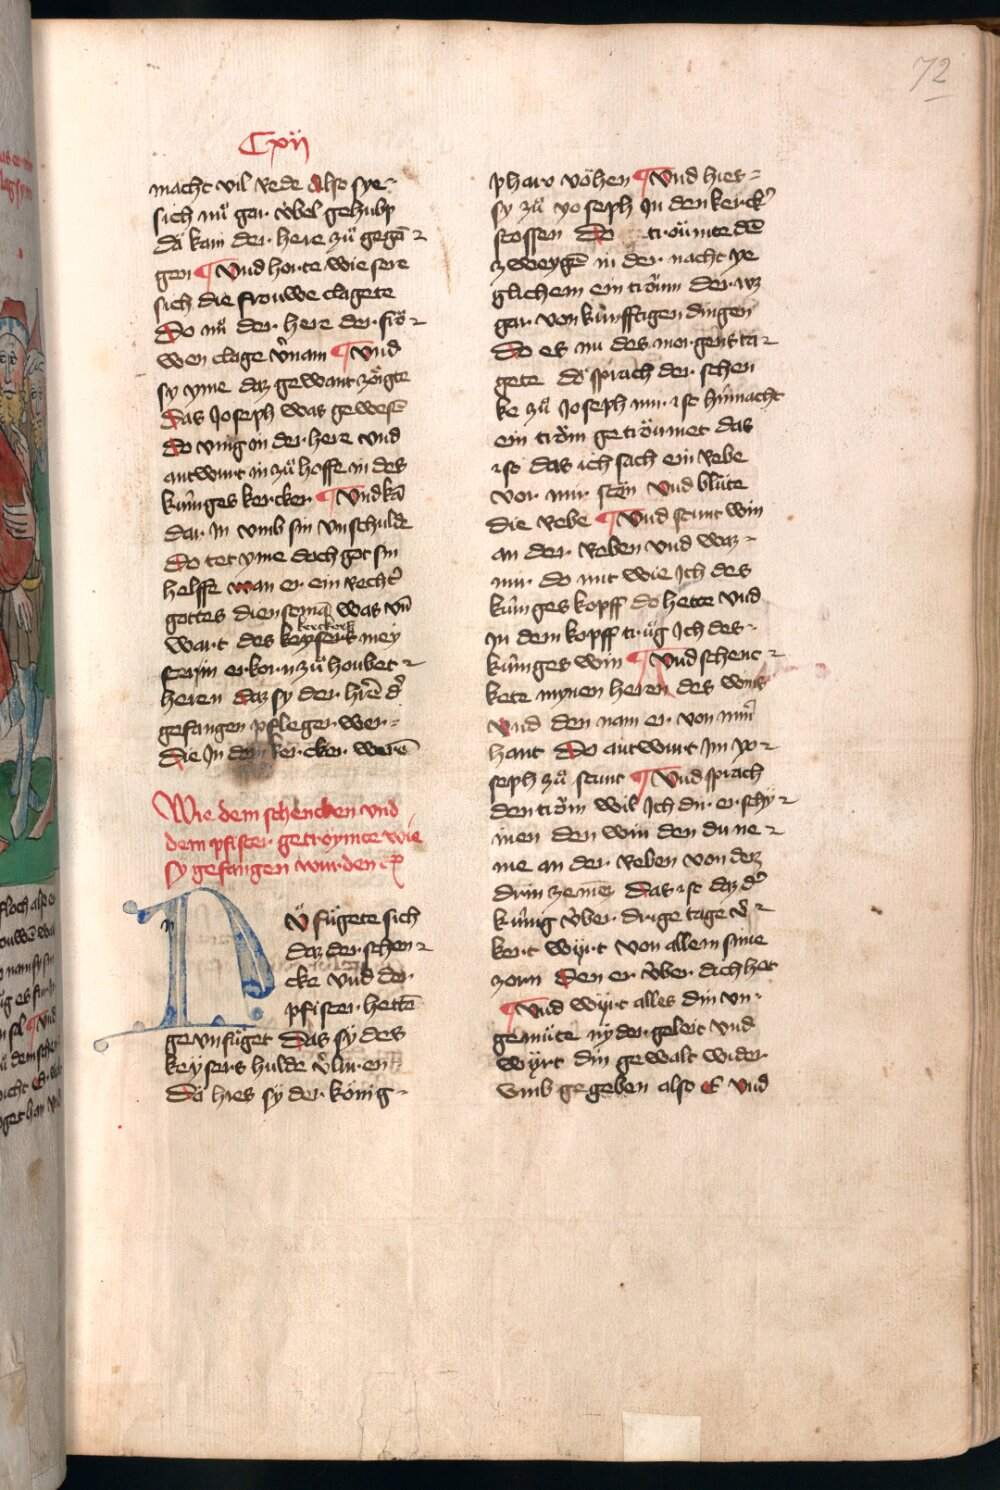 72
Cxij
macht vil rede also sye-
sich nuͦ gar v̈bel gehuͦb
då kam der here zuͦ gegā
gen ¶ Vnd horte wie sere
sich die frouwe clagete
Do nuͦ der here der frö
wen clage v̓nam ¶ Vnd
sy yme daz gewant zöigte
Das Joseph was gewesē
do ving in der here vnd
antwurt in zuͦ hoffe in des
küniges kercker ¶ Vnd kā
dar In vmb sin vnschulde
Do tet yme doch got sin
helffe wan er ein recht̓
gottes dienstmā was vn̄
wart des keysers mey
kerckers
sterin erkorn zuͦ houbet
heren daz sy der hrē d̓
gefangen pfleger wer-
Die In dem kercker werē
Wie dem schencken vnd
dem pfister getroymte wie
sy gefangen wurden
NV̊ fuͤgete sich
daz der schen
cke vnd der
pfister hettē
gevnfuͤget Das sÿ des
keÿsers hulde v̓luren
Dö hies sÿ der könig-
pharo vöhen ¶ Vnd hies-
sy zuͦ yoseph In den kerck̓
stossen Do troͤumte dē
zweygē in der nacht ye
glichem ein troͤum der waz
gar von künfftigen dingen
Do es nu des morgens ta
gete dö sprach der schen
ke zuͦ Joseph mir ist hinnacht
ein trom getroͤumet das
ist das ich sach ein rebe
vor mir stän vnd bluͤte
die rebe ¶ Vnd stunt win
an der reben vnd waz-
mir do mit wie Ich des
küniges kopff do hette vnd
In dem kopff truͤg Ich des-
küniges win ¶ Vnd schenc
kete mynen heren des wins
vnd den nam er von min̓
hant Do antwurt Im yo
seph zuͦ stunt ¶ Vnd sprach
den trom wil Ich dir erschy
inen den win den du ne
me an der reben von daz
drin zemez Das ist daz d̓
künig v̈ber drige tage v̓
kert wÿrt von allem sinie
zorn Den er v̈ber dich het
¶ Vnd wÿrt alles din vn-
gemuͤte nÿdergeleit vnd
wÿrt din gewalt wider
vmb gegeben also E vnd